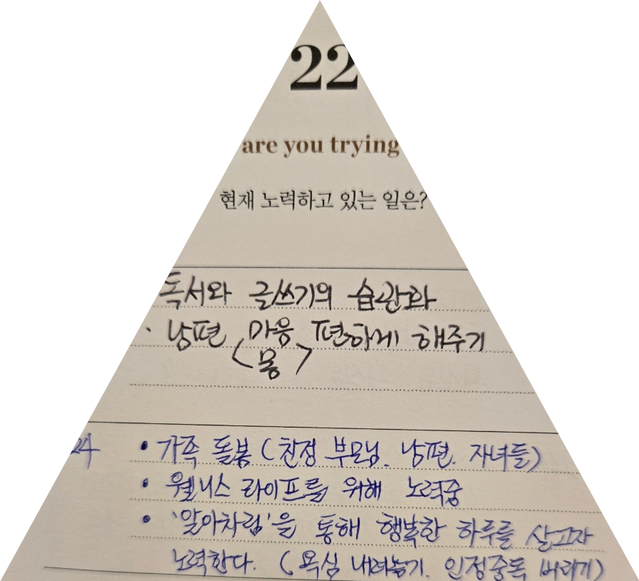 22
are you trying
현재 노력하고 있는 일은?
독서와 글쓰기의 습관화
· 남편 마음 편하게 해주기
<몸>
24 • 가족 돌봄 (친정 부모님. 남편. 자녀들)
• 웰니스 라이프를 위해 노력중
• '알아차림'을 통해 행복한 하루를 살고자
노력한다. (욕심 내려놓기. 인정중독 버리기)